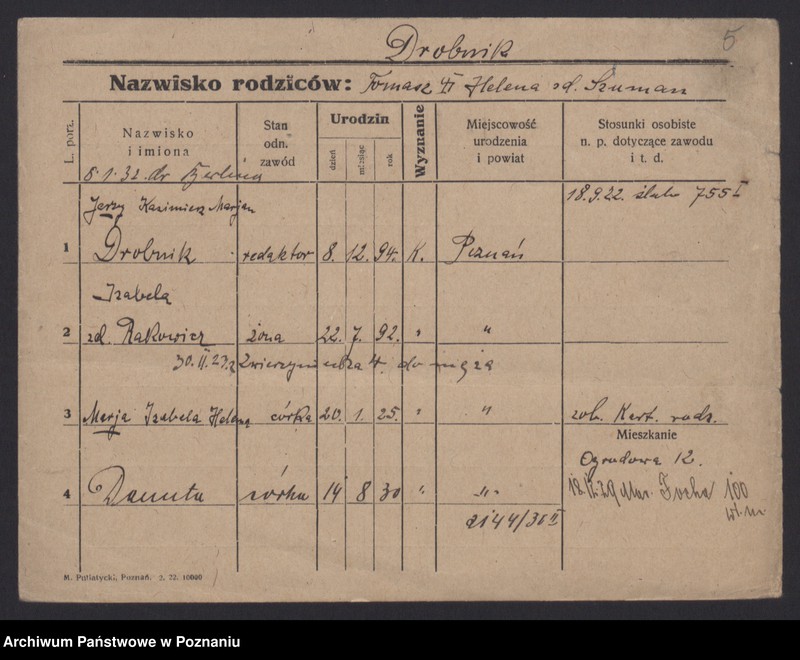 5
Drobnik
Nazwisko rodziców: Tomasz i Helena zd. Szuman
L. porz.
Nazwisko i imiona
Stan odn. zawód
Urodzin
dzień
miesiąc
rok
Wyznanie
Miejscowość urodzenia i powiat
Stosunki osobiste n. p. dotyczące zawodu i t. d.
8.1.32. do Berlina
18.9.22. ślub 755 I
Jerzy Kazimierz Marjan
1 Drobnik redaktor 8. 12. 94. K. Poznań
Izabela
2 zd. Rakowicz żona 22. 7. 92. " "
30.11.23 z Zwierzyniecka 4. do męża
3 Marja Izabela Helena córka 20. 1. 25. " " zob. Kart. rodz.
Mieszkanie
Ogrodowa 12.
4 Danuta córka 14 8 30 " "
Mar. Focha 100
2144/30 II
wł. m.
M. Putiatycki, Poznań. 2. 22. 10000
Archiwum Państwowe w Poznaniu